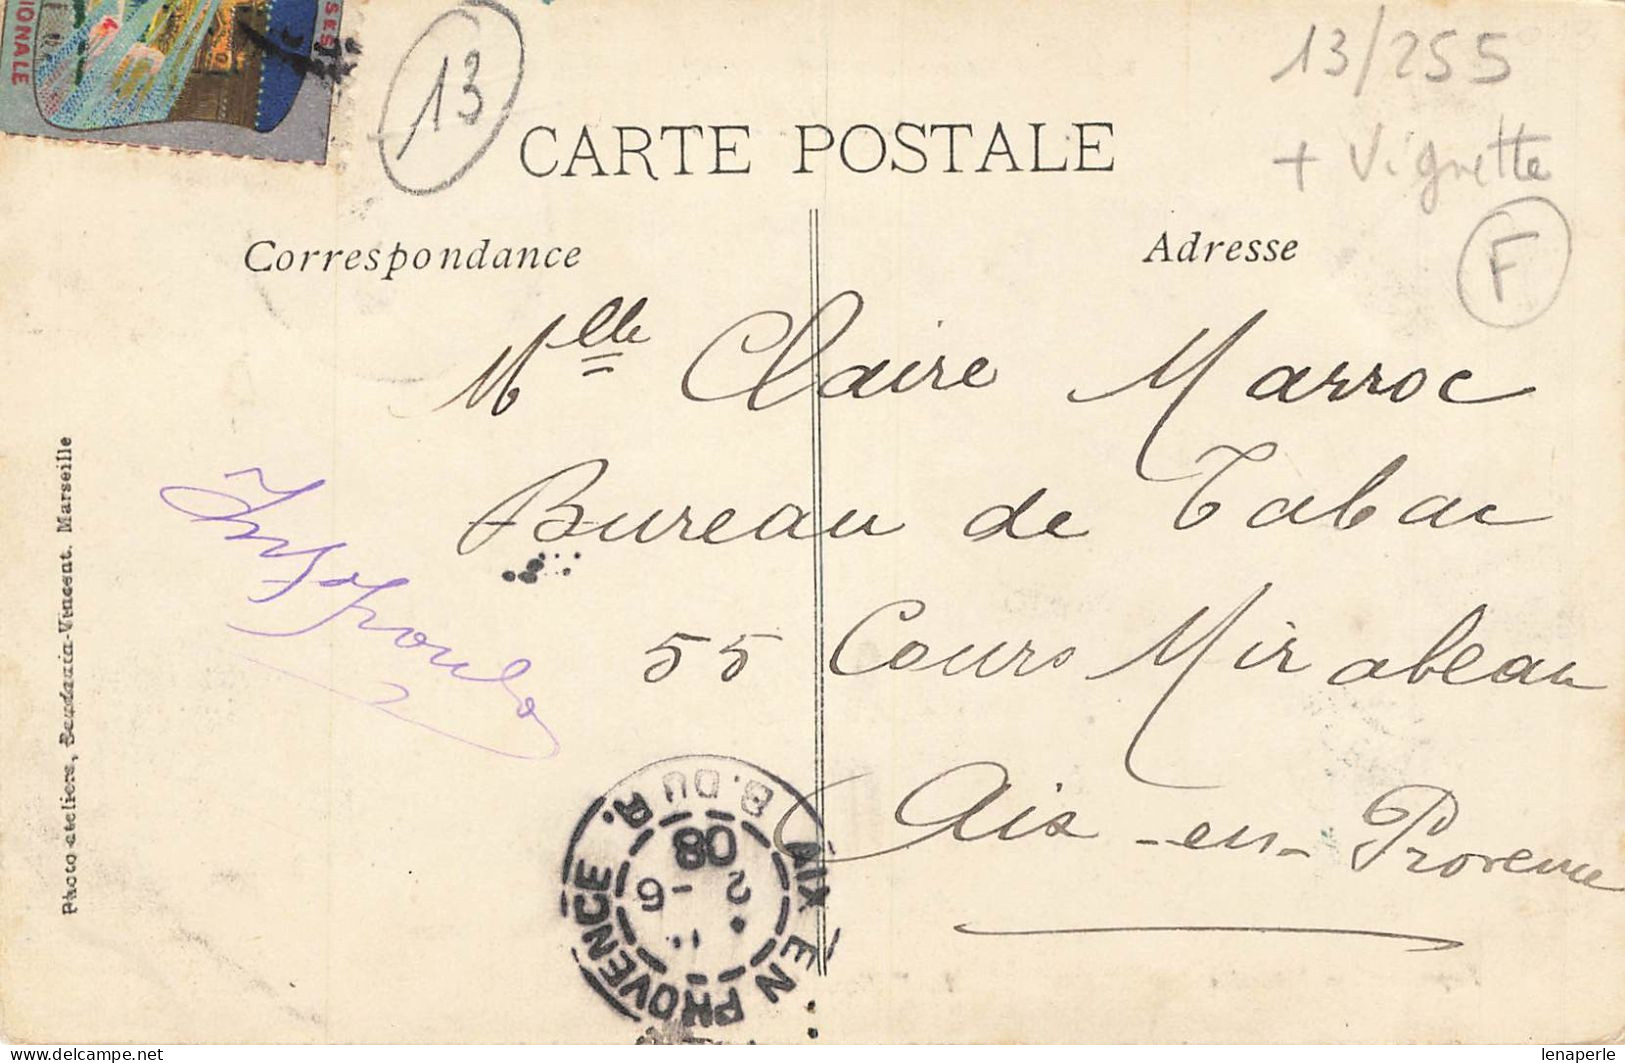 SES
IONALE
13
13/255
+ Vignette
F
CARTE POSTALE
Correspondance
Adresse
Mlle Claire Marroc
Bureau de Tabac
55 Cours Mirabeau
Aix-en-Provence
Photo-ateliers, Vincent. Marseille
AIX EN PROVENCE
B. DU R.
2 - 6
08
lenaperle